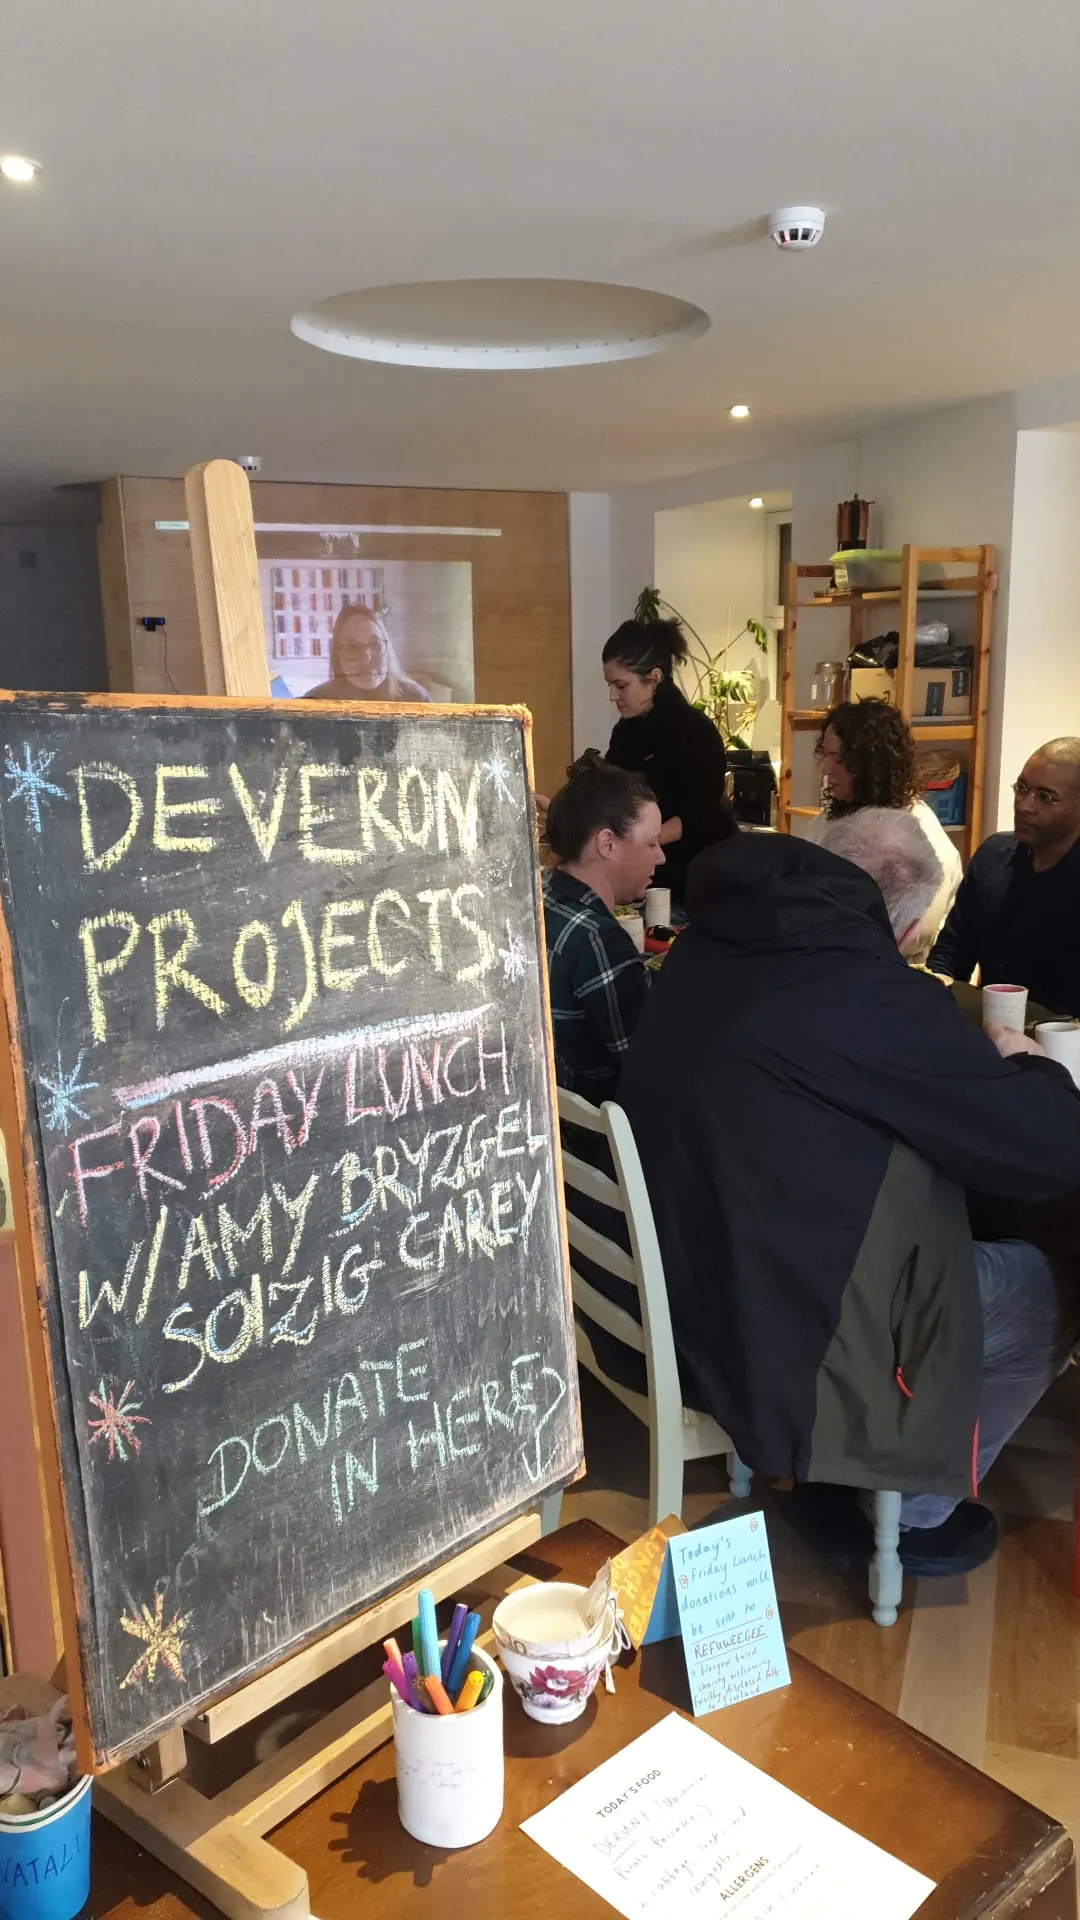 DEVERON
PROJECTS
FRIDAY LUNCH
W/ AMY BRYZGEL
SOIZIG CAREY
DONATE
IN HERE
Today's
Friday Lunch
donations will
be sent to
REFUWEEGEE
a Glasgow based
charity welcoming
forcibly displaced folk
to Scotland
LUNCH
TODAY'S FOOD
DERUNY (Ukrainian
Potato Pancakes)
cabbage
courgette
ALLERGENS
NATALI